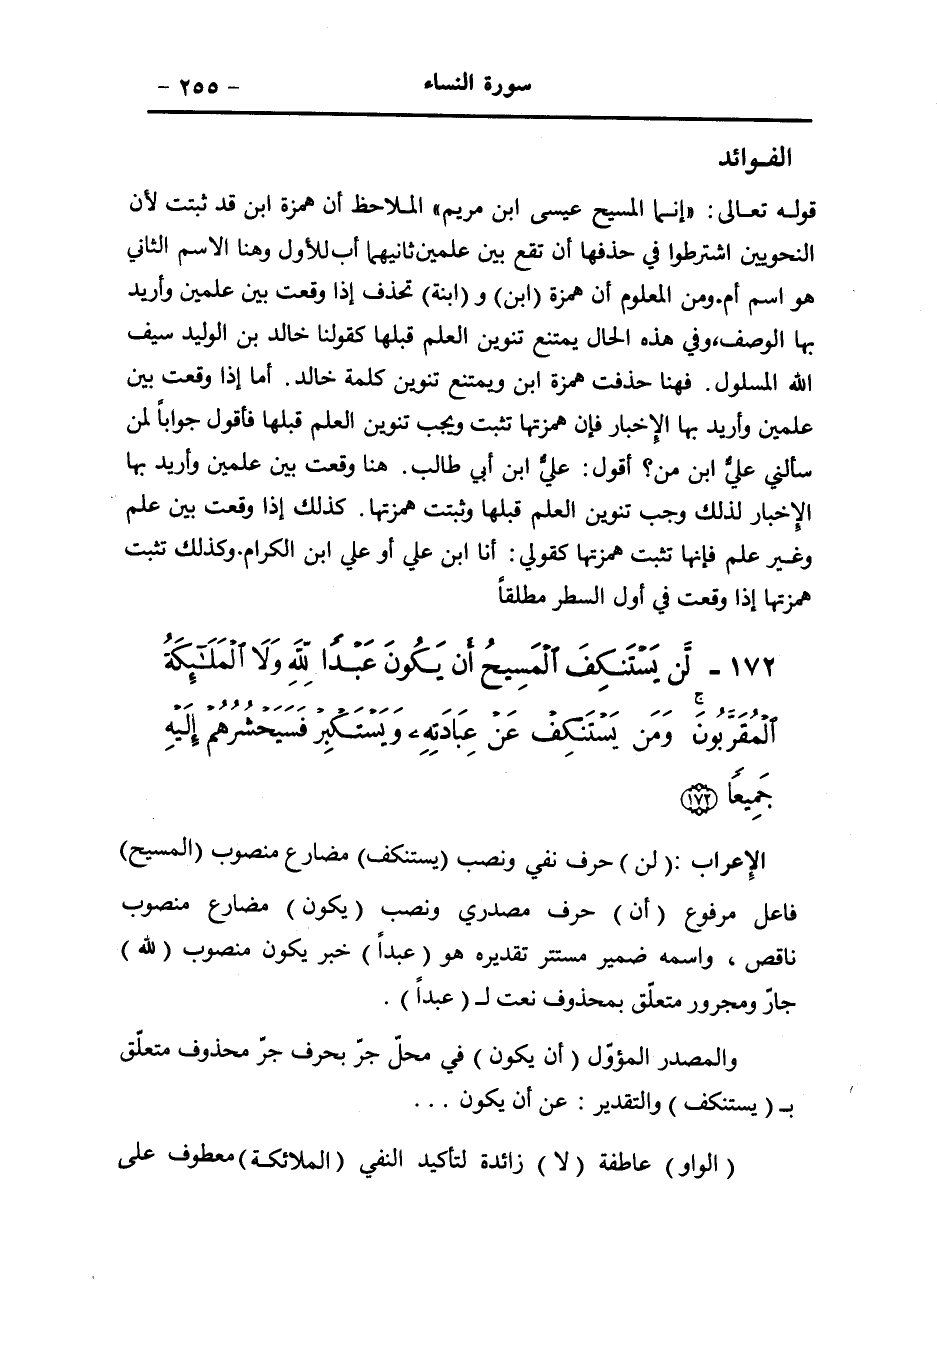 سورة النساء - ٢٥٥ -
الفـوائد
قولـه تعـالى : «إنـما المسيح عيسى ابن مريم» المـلاحظ أن همزة ابن قد ثبتت لأن
النحويين اشترطوا في حذفها أن تقع بين علمين ثانيهما أب للأول وهنا الاسم الثاني
هو اسم أم. ومن المعلوم أن همزة (ابن) و (ابنة) تحذف إذا وقعت بين علمين وأريد
بها الوصف، وفي هذه الحال يمتنع تنوين العلم قبلها كقولنا خالد بن الوليد سيف
الله المسلول . فهنا حذفت همزة ابن ويمتنع تنوين كلمة خالد . أما إذا وقعت بين
علمين وأريد بها الإخبار فإن همزتها تثبت ويجب تنوين العلم قبلها فأقول جواباً لمن
سألني عليٌّ ابن من؟ أقول : عليٌّ ابن أبي طالب . هنا وقعت بين علمين وأريد بها
الإخبار لذلك وجب تنوين العلم قبلها وثبتت همزتها . كذلك إذا وقعت بين علم
وغـير علم فإنها تثبت همزتها كقولي : أنا ابن علي أو علي ابن الكرام. وكذلك تثبت
همزتها إذا وقعت في أول السطر مطلقاً
١٧٢ - لَّن يَسْتَنكِفَ ٱلْمَسِيحُ أَن يَكُونَ عَبْدًا لِّلَّهِ وَلَا ٱلْمَلَـٰٓئِكَةُ
ٱلْمُقَرَّبُونَ ۚ وَمَن يَسْتَنكِفْ عَنْ عِبَادَتِهِۦ وَيَسْتَكْبِرْ فَسَيَحْشُرُهُمْ إِلَيْهِ
جَمِيعًا ﴿١٧٢﴾
الإعراب : ( لن ) حرف نفي ونصب (يستنكف) مضارع منصوب (المسيح)
فاعل مرفوع ( أن ) حرف مصدري ونصب ( يكون ) مضارع منصوب
ناقص ، واسمه ضمير مستتر تقديره هو ( عبداً ) خبر يكون منصوب ( لله )
جارّ ومجرور متعلّق بمحذوف نعت لـ ( عبداً ) .
والمصدر المؤوّل ( أن يكون ) في محلّ جرّ بحرف جرّ محذوف متعلّق
بـ ( يستنكف ) والتقدير : عن أن يكون . . .
( الواو ) عاطفة ( لا ) زائدة لتأكيد النفي ( الملائكـة ) معطوف على